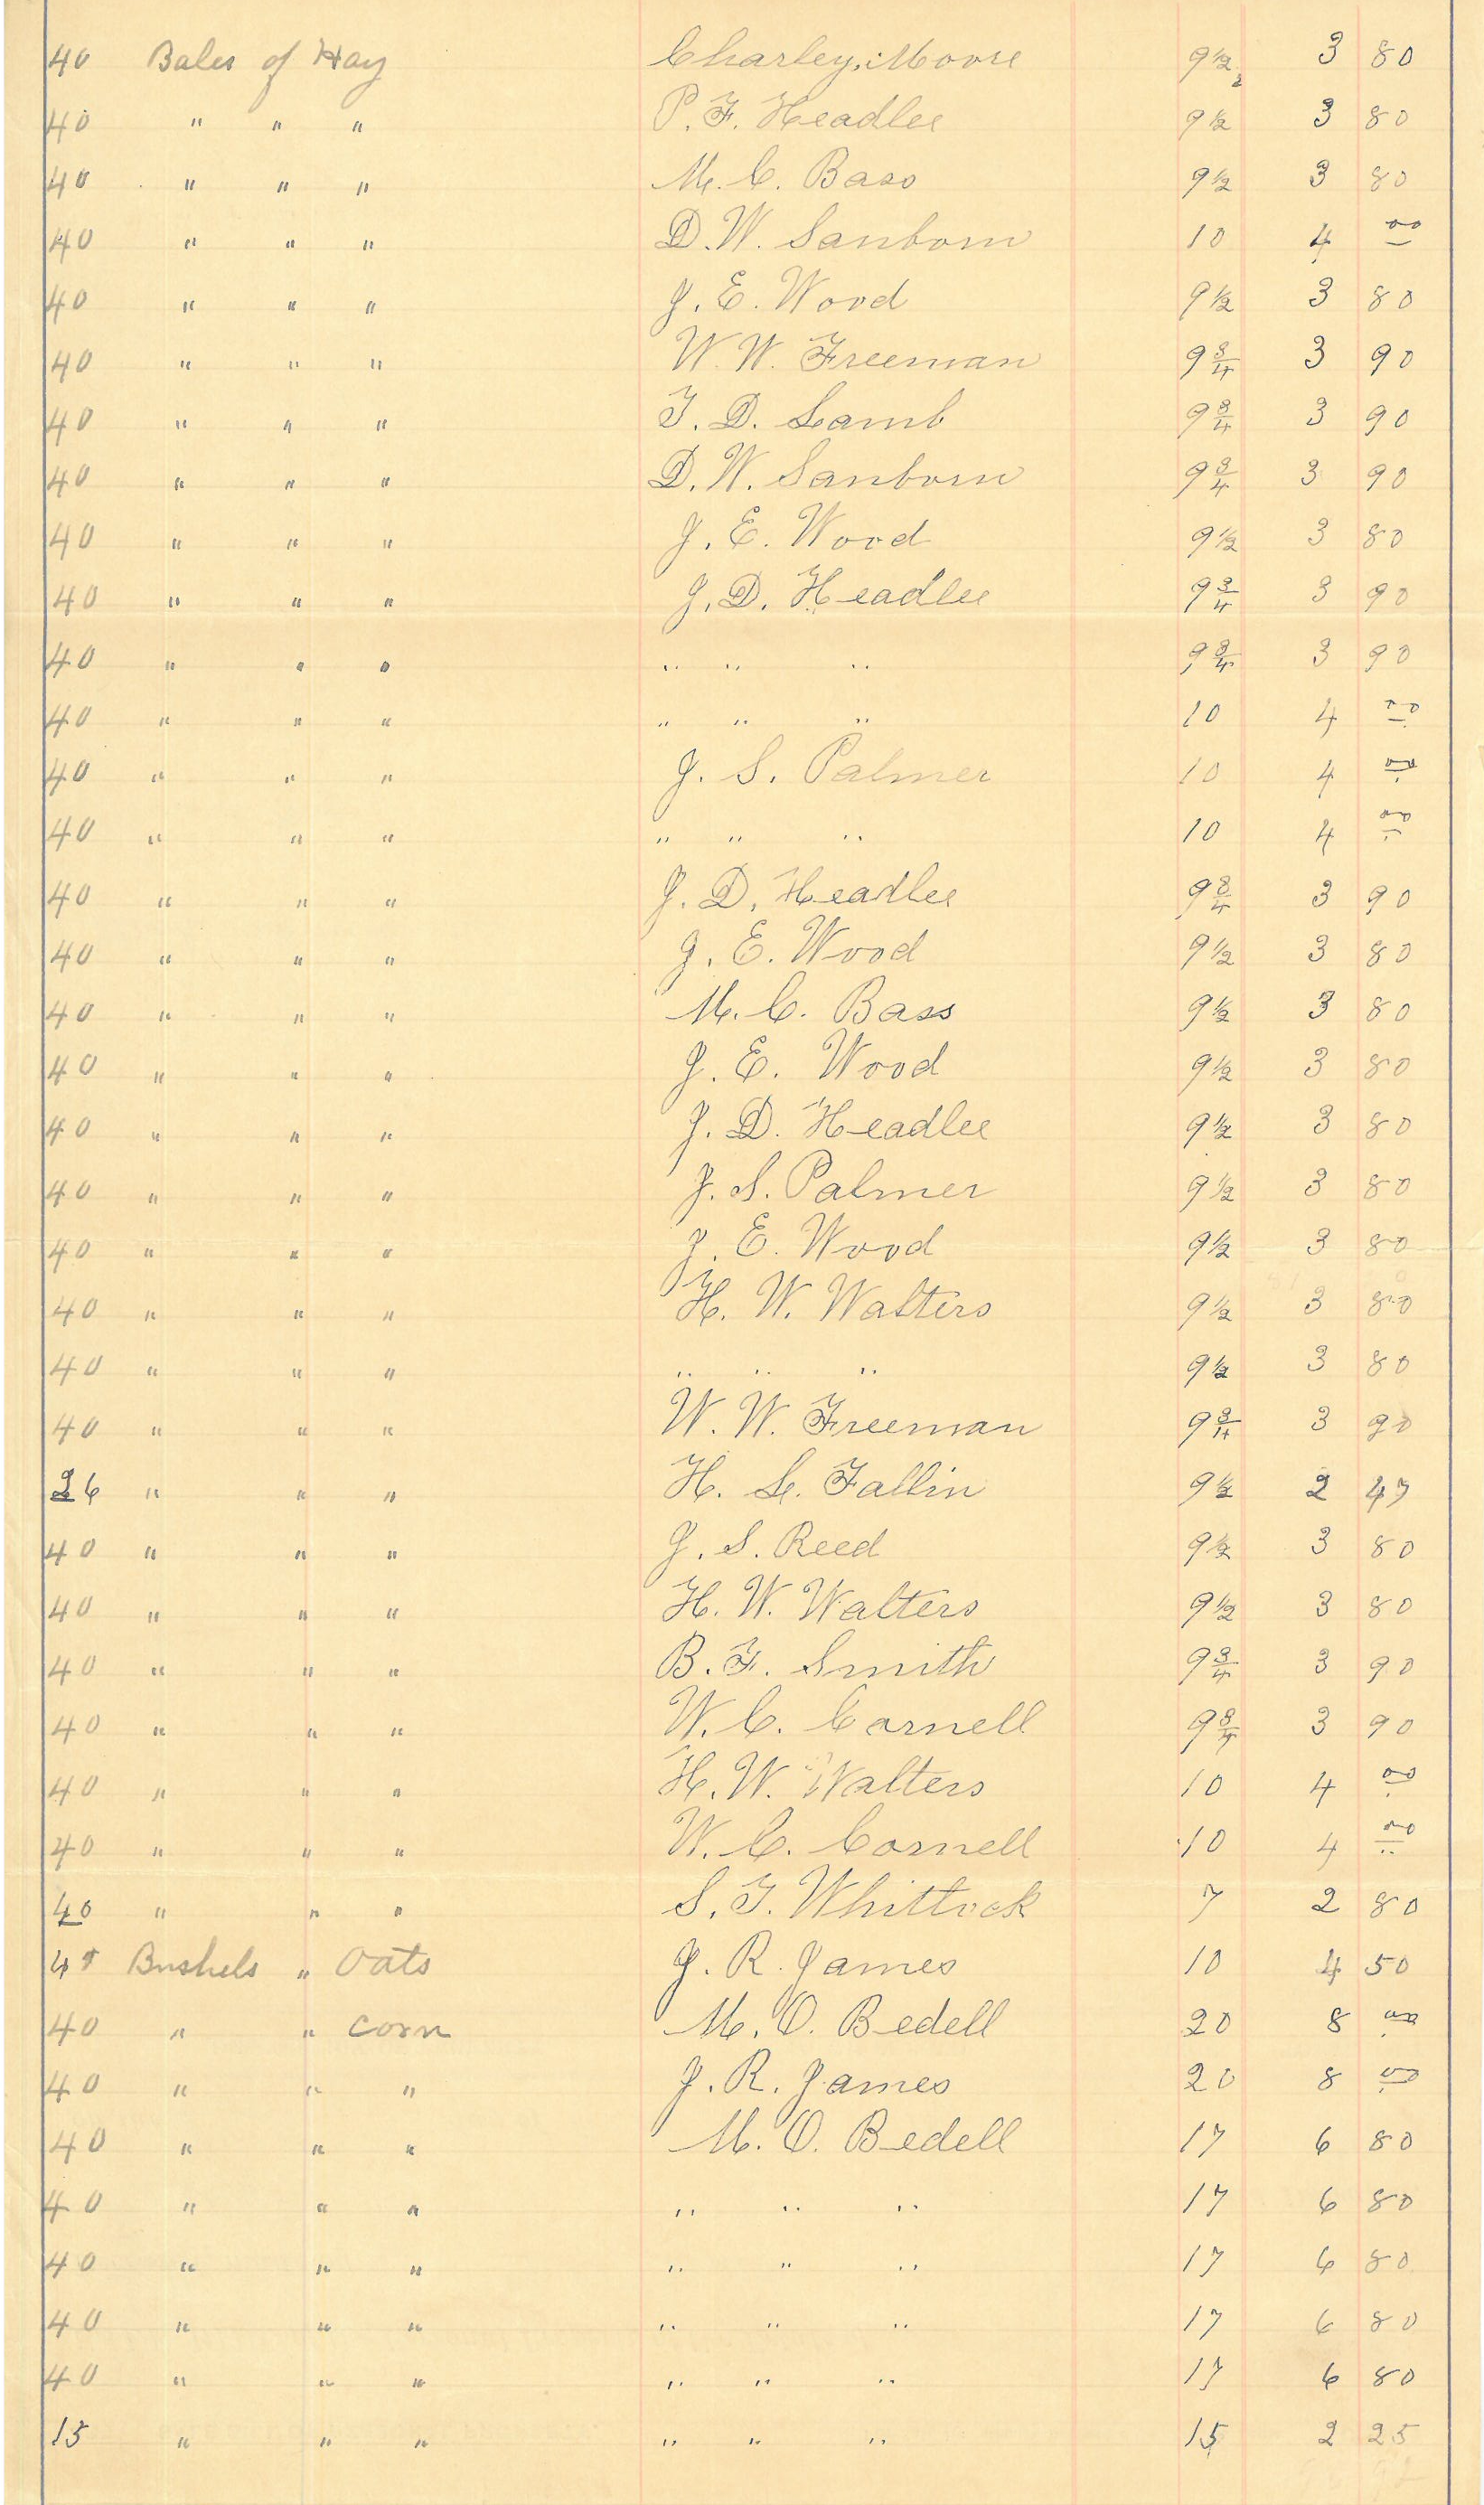 40 Bales of Hay Charley Moore 9½ 3 80
40 " " " P. F. Headlee 9½ 3 80
40 " " " M. C. Bass 9½ 3 80
40 " " " D. W. Sanborn 10 4 00
40 " " " J. E. Wood 9½ 3 80
40 " " " W. W. Freeman 9¾ 3 90
40 " " " T. D. Lamb 9¾ 3 90
40 " " " D. W. Sanborn 9¾ 3 90
40 " " " J. E. Wood 9½ 3 80
40 " " " J. D. Headlee 9¾ 3 90
40 " " " " " " 9¾ 3 90
40 " " " " " " 10 4 00
40 " " " J. S. Palmer 10 4 00
40 " " " " " " 10 4 00
40 " " " J. D. Headlee 9¾ 3 90
40 " " " J. E. Wood 9½ 3 80
40 " " " M. C. Bass 9½ 3 80
40 " " " J. E. Wood 9½ 3 80
40 " " " J. D. Headlee 9½ 3 80
40 " " " J. S. Palmer 9½ 3 80
40 " " " J. E. Wood 9½ 3 80
40 " " " H. W. Walters 9½ 3 80
40 " " " " " " 9½ 3 80
40 " " " W. W. Freeman 9¾ 3 90
26 " " " H. L. Fallin 9½ 2 47
40 " " " J. S. Reed 9½ 3 80
40 " " " H. W. Walters 9½ 3 80
40 " " " B. F. Smith 9¾ 3 90
40 " " " W. C. Cornell 9¾ 3 90
40 " " " H. W. Walters 10 4 00
40 " " " W. C. Cornell 10 4 00
40 " " " S. T. Whittock 7 2 80
45 Bushels " Oats J. R. James 10 4 50
40 " " corn M. O. Bedell 20 8 00
40 " " " J. R. James 20 8 00
40 " " " M. O. Bedell 17 6 80
40 " " " " " " 17 6 80
40 " " " " " " 17 6 80
40 " " " " " " 17 6 80
40 " " " " " " 17 6 80
15 " " " " " " 15 2 25